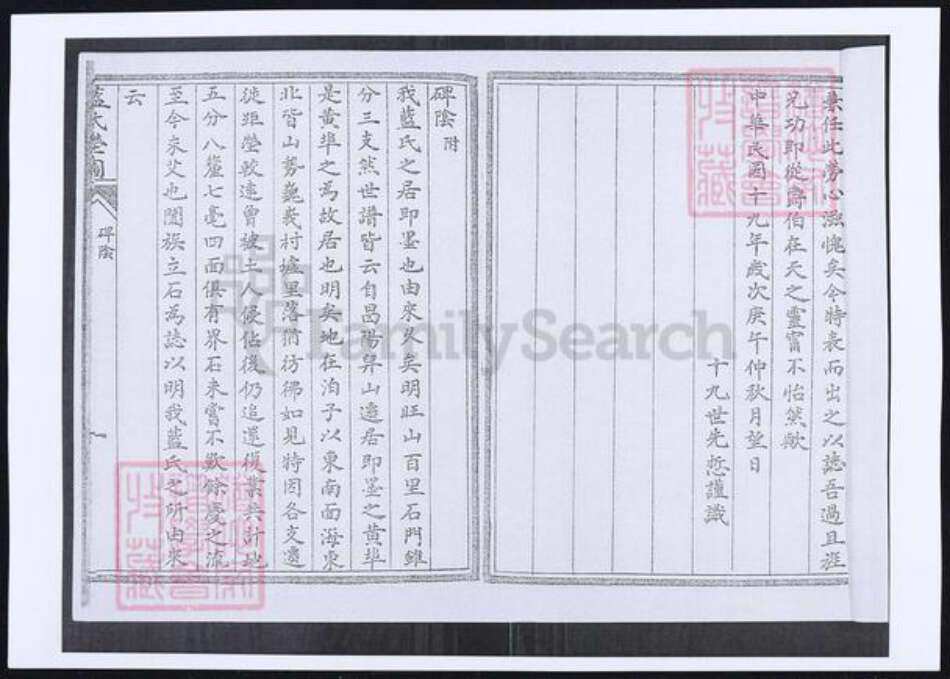 兼任此勞心滋愧矣今特表而出之以誌吾過且誌
兄功即從爵伯在天之靈寧不怡然歟
中華民國十九年歲次庚午仲秋月望日
十九世先悊謹識
碑陰 附
我藍氏之居即墨也由來久矣明旺山百里石門雖
分三支然世譜皆云自昌陽舁山遷居即墨之黃埠
是黃埠之為故居也明矣地在泊子以東南面海東
北皆山勢巍峩村墟里落猶彷彿如見特因各支遷
徙距塋較遠曾被土人侵佔後仍追還復業共計地
五分八釐七毫四面俱有界石未嘗不歎餘慶之流
至今未艾也闔族立石為誌以明我藍氏之所由來
云
藍氏塋圖
碑陰
一
FamilySearch